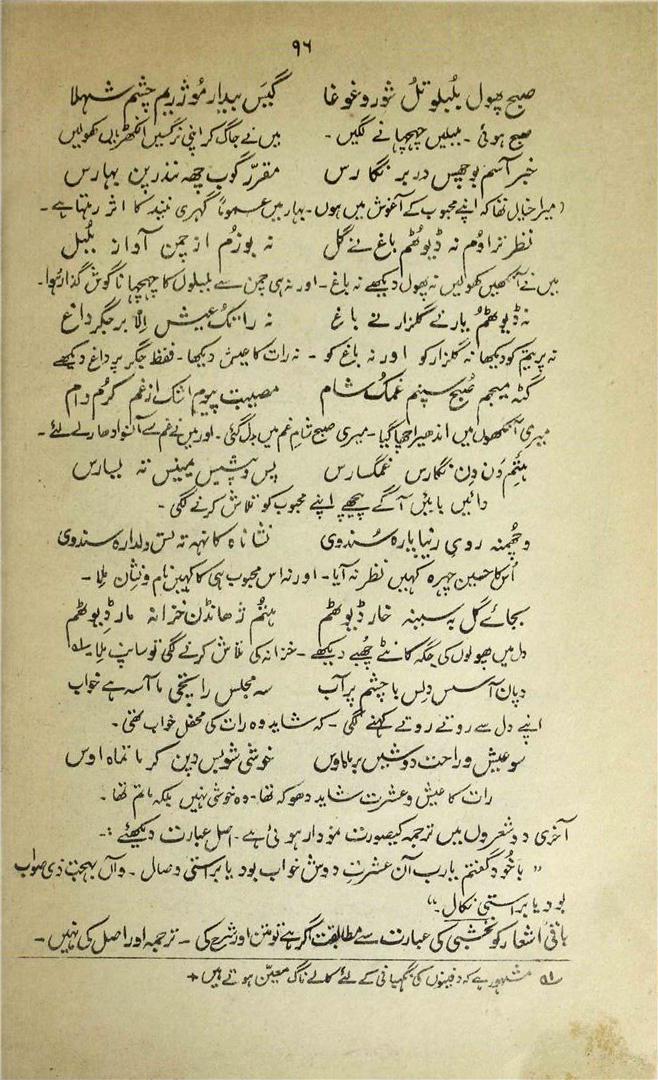 ۹۶
صبح پھول بلبلو تُل شور و غوغا گیَس بیدار مُوژریم چشمِ شہلا
صبح ہوئی ۔ بلبلیں چہچہانے لگیں ۔ میں نے جاگ کر اپنی نرگسیں انکھڑیاں کھولیں
خبر آسم بو چھس در بر نگارس مقرّر گوب چھہ نندر ین بہارس
(میرا خیال تھا کہ اپنے محبوب کے آغوش میں ہوں ۔ بہار میں عموماً گہری نیند کا اثر رہتا ہے ۔
نظر تراوم نہ ڈیوٹھم باغ نے گل نہ بوزم از چمن آواز بلبل
میں نے آنکھیں کھولیں نہ پھول دیکھے نہ باغ ۔ اور نہ ہی چمن سے بلبلوں کا چہچہانا گوش گذار ہوا ۔
نہ ڈیوٹھم یار نے گلزار نے باغ نہ راتُک عیش اِلّا بر جگر داغ
نہ پریتم کو دیکھا نہ گلزار کو اور نہ باغ کو ۔ نہ رات کا عیش دیکھا ۔ فقط جگر پر داغ دیکھے
گٹہ میجم صُبح سپنم غمُک شام مصیبت پیوم اشک از غم کرُم وام
میری آنکھوں میں اندھیرا چھا گیا ۔ میری صبح شام غم میں بدل گئی ۔ اور میں نے غم سے آنسو ادھار لے لئے ۔
ہیتم دَن دِن نگارس غمگسارس پس و پیش یمینس تہ یسارس
دائیں بائیں آگے پیچھے اپنے محبوب کو تلاش کرنے لگی ۔
وچھمنہ روی زیبا یارہ سُندوی نشانا ہ کانہہ تہ تس دلدارہ سندوی
اُس کا حسین چہرہ کہیں نظر نہ آیا ۔ اور نہ اس محبوب ہی کا کہیں نام و نشان ملا ۔
بجائے گل بہ سینہ خار ڈیوٹھم ہیتم ژھانڈن خزانہ مار ڈیوٹھم
دل میں پھولوں کی جگہ کانٹے چھپے دیکھے ۔ خزانہ کی تلاش کرنے لگی تو سانپ ملا ۔ ؎۱
دپان آسس دِلس با چشم پر آب سہ مجلس راتچی ما آسہ ہے خواب
اپنے دل سے روتے روتے کہنے لگی ۔ کہ شاید وہ رات کی محفل خواب تھی ۔
سو عیش و راحت دوشیں بر ماوس خوشی شویس دپن کر ماتماہ اوس
رات کا عیش و عشرت شاید دھوکہ تھا ۔ وہ خوشی نہیں بلکہ ماتم تھا ۔
آخری دو شعروں میں ترجمہ کیصورت مودار ہوئی ہے ۔ اصل عبارت دیکھئے :۔
" با خود گفتم یارب آن عشرتِ دوش خواب بود یا براستی وصال ۔ و آں بہجت ذی صواب
بود یا براستی نکال ۔"
باقی اشعار کو نخشبی کی عبارت سے مطابقت اگر ہے تو متن اور شرح کی ۔ ترجمہ اور اصل کی نہیں ۔
؎۱ مشہور ہے کہ دفینوں کی نگہبانی کے لئے کالے ناگ معیّن ہوتے ہیں ۔